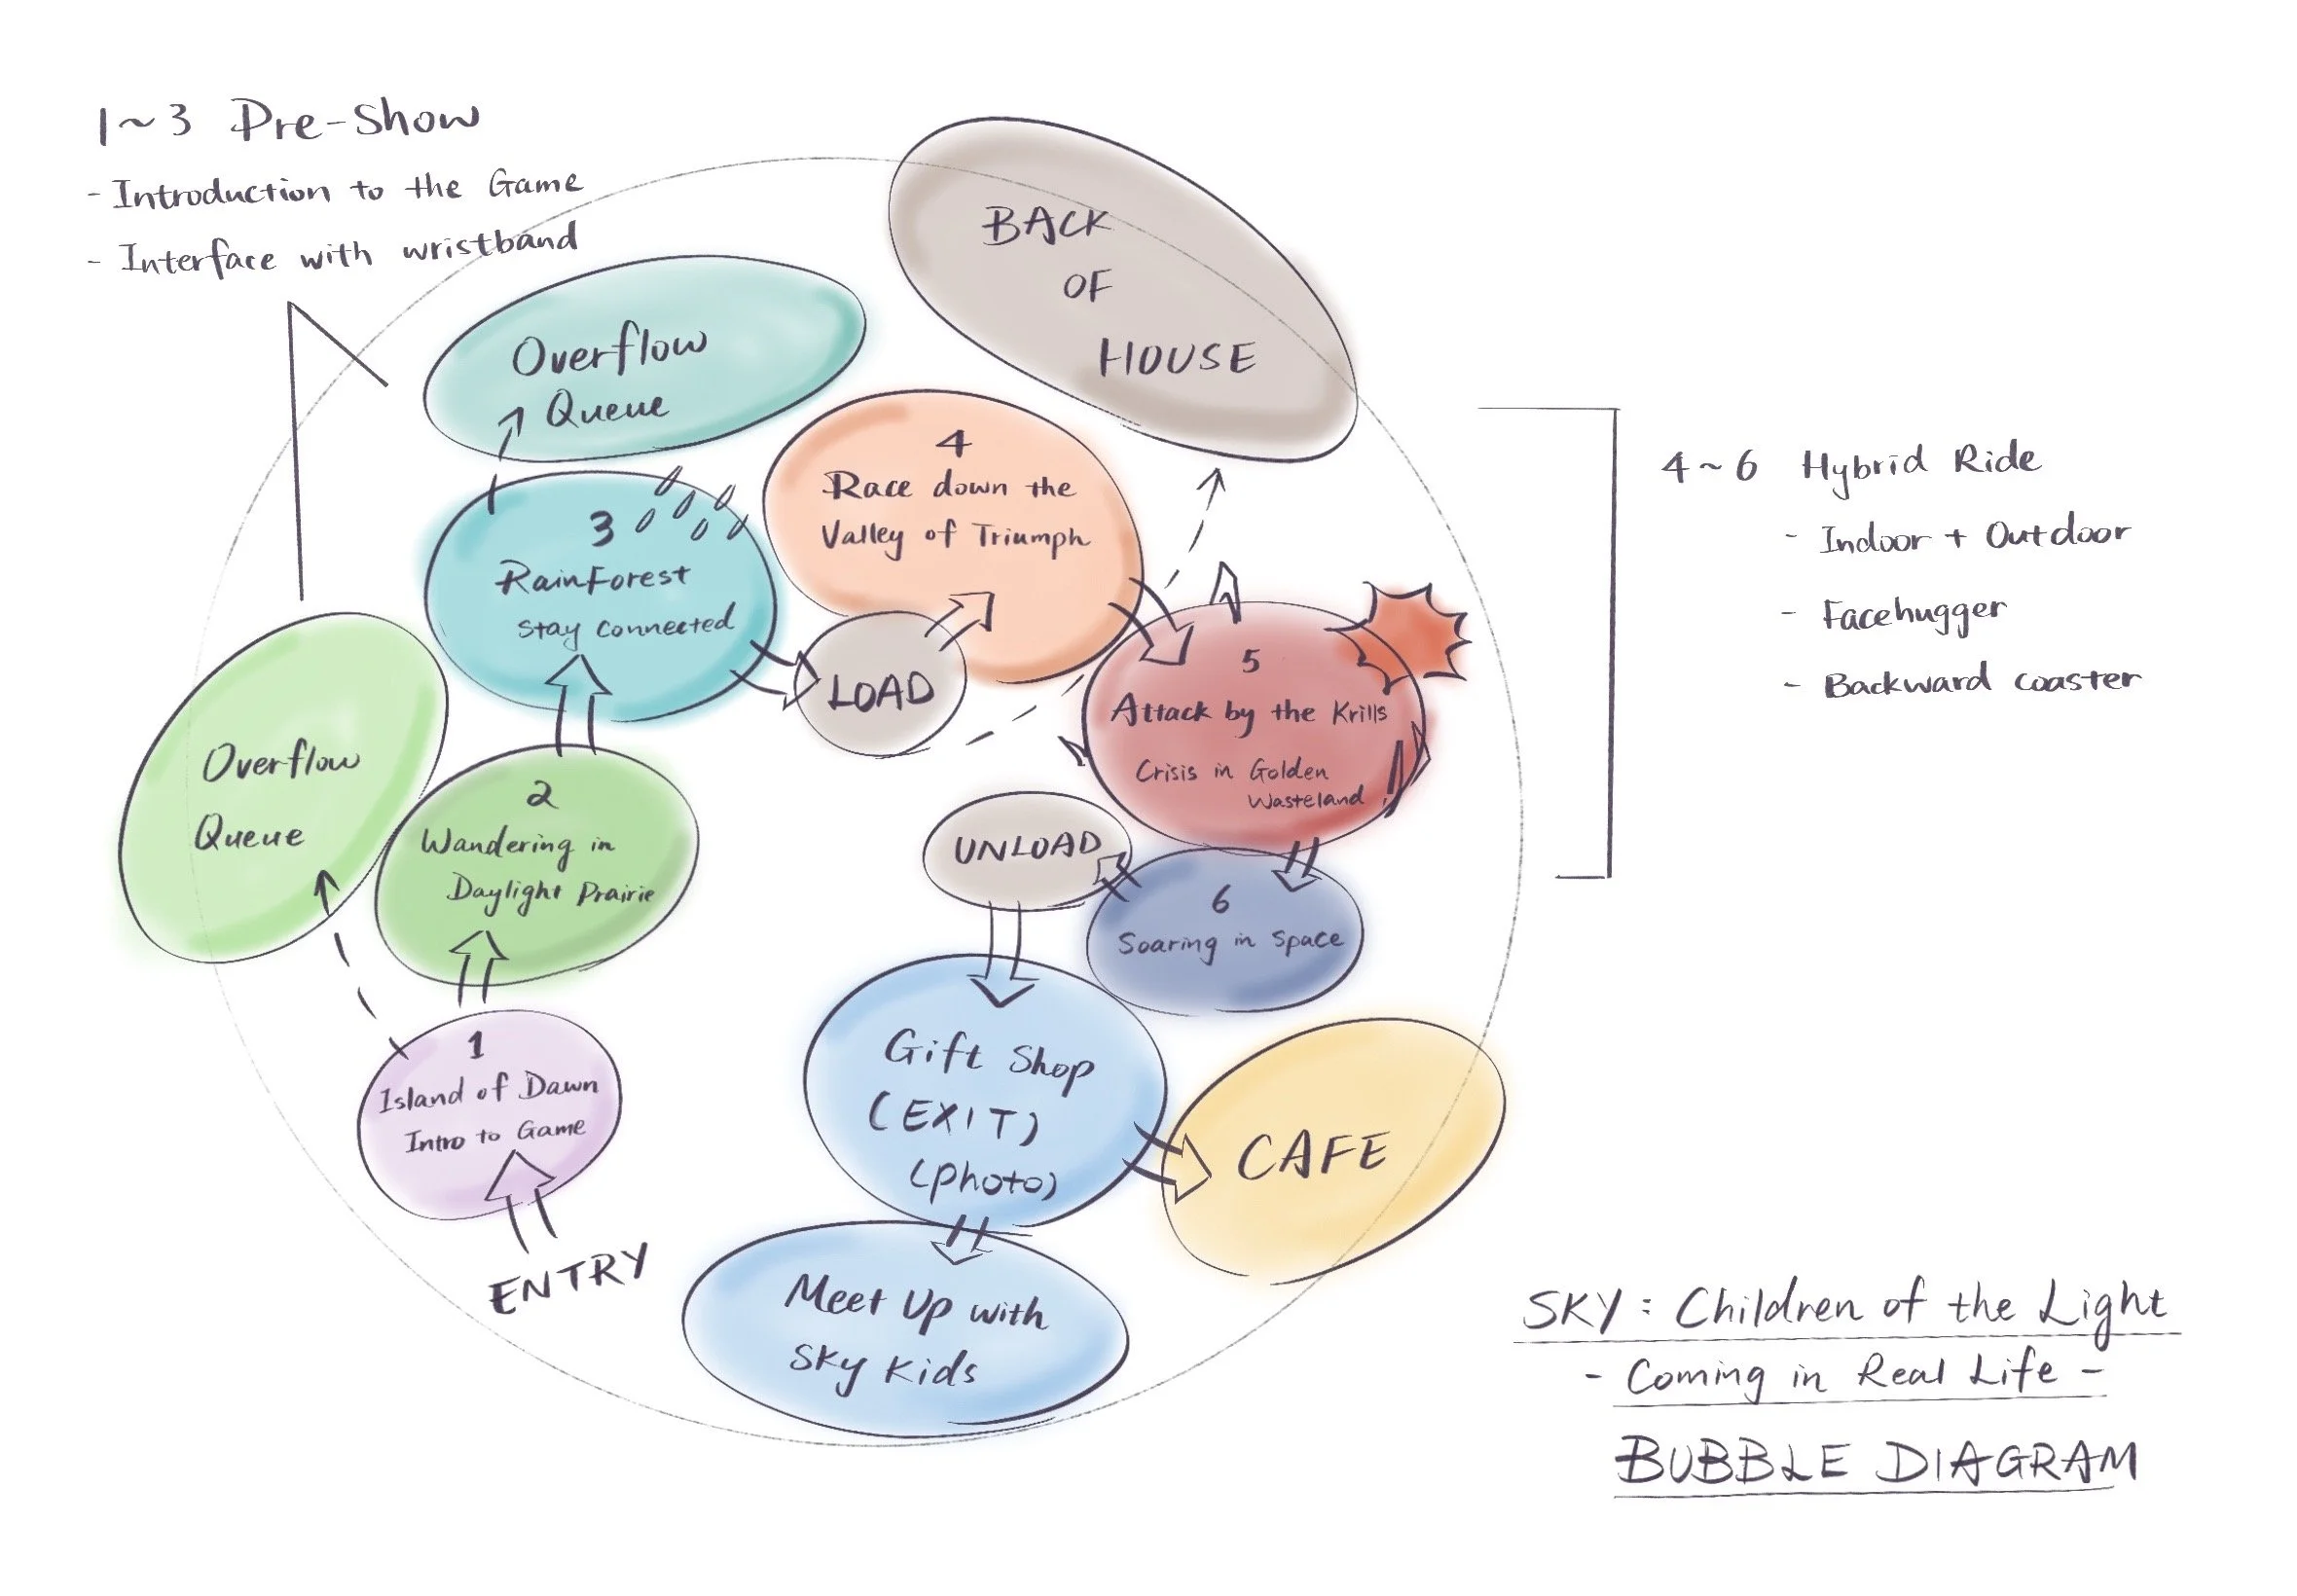 1~3 Pre-Show
- Introduction to the Game
- Interface with wristband
BACK
OF
HOUSE
Overflow
Queue
4
Race down the
Valley of Triumph
3
RainForest
stay connected
LOAD
4~6 Hybrid Ride
- Indoor + Outdoor
- Facehugger
- Backward coaster
5
Attack by the Krills
Crisis in Golden
Wasteland
Overflow
Queue
2
Wandering in
Daylight Prairie
UNLOAD
6
Soaring in space
1
Island of Dawn
Intro to Game
ENTRY
Gift Shop
(EXIT)
(photo)
CAFE
Meet Up with
Sky Kids
SKY: Children of the Light
- Coming in Real Life -
BUBBLE DIAGRAM